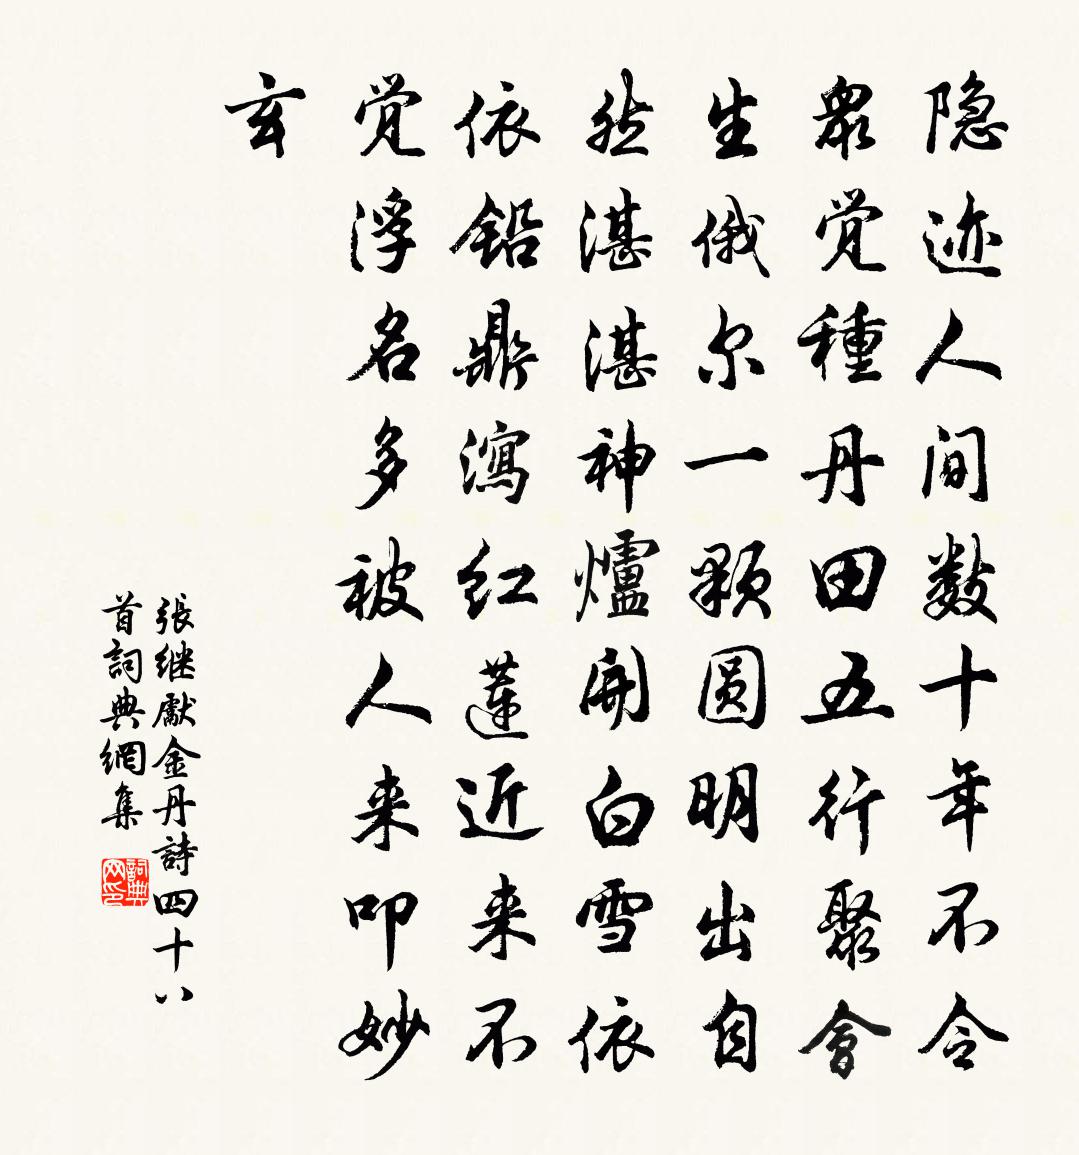 隐迹人间数十年不令
眾觉種丹田五行聚會
生俄尔一颗圆明出自
然湛湛神爐開白雪依
依铅鼎瀉红蓮近来不
觉浮名多被人来叩妙
玄
張继獻金丹詩四十八
首詞典網集
詞典网印